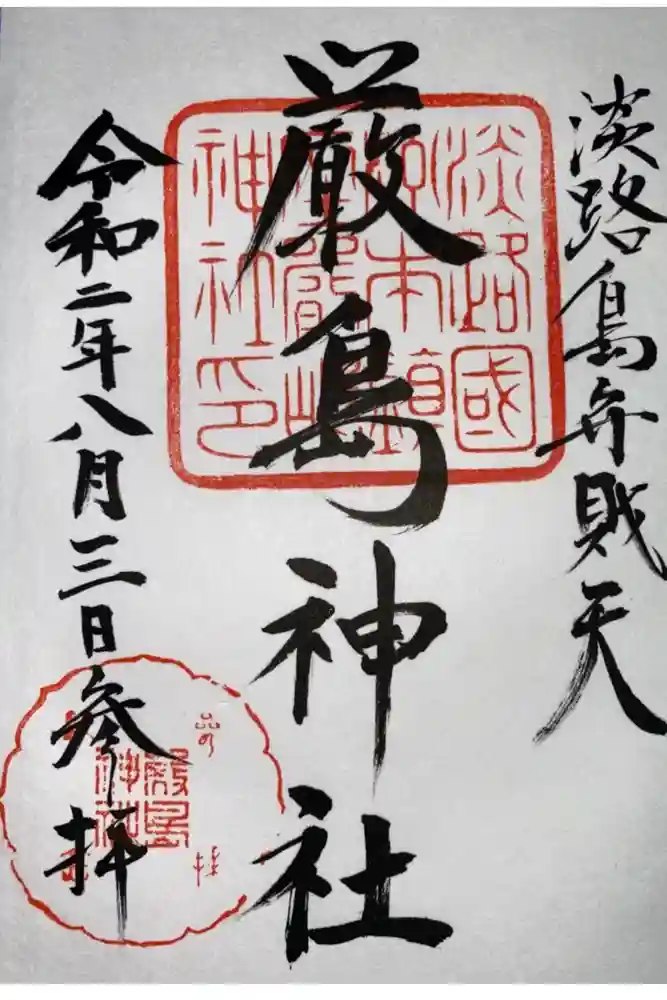 淡路島弁財天
厳島神社
令和二年八月三日参拝
淡路國
本鎮
神社印
厳島
神社